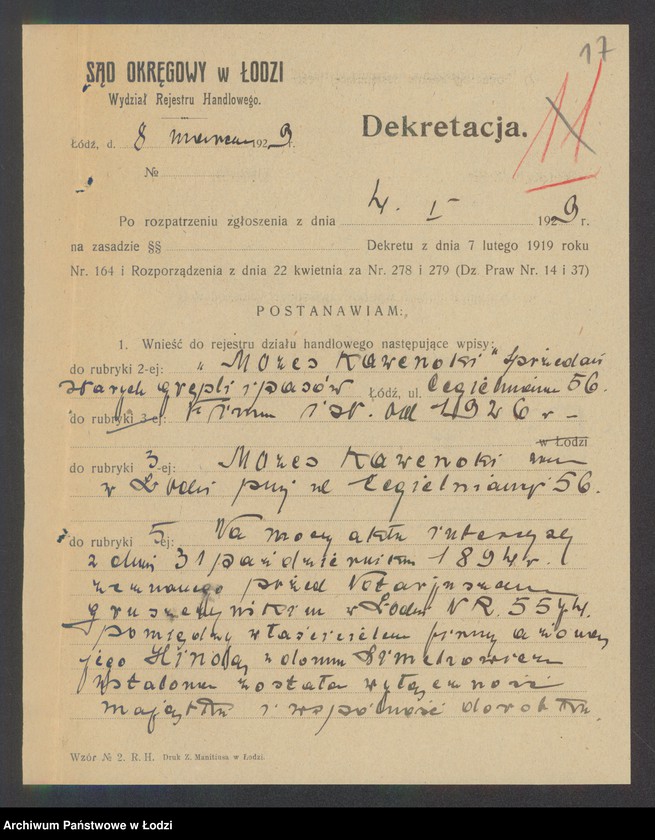 17
11
SĄD OKRĘGOWY w ŁODZI
Wydział Rejestru Handlowego.
Dekretacja.
Łódź, d. 8 marca 1929 r.
№
Po rozpatrzeniu zgłoszenia z dnia 4. I 1929 r.
na zasadzie §§ Dekretu z dnia 7 lutego 1919 roku
Nr. 164 i Rozporządzenia z dnia 22 kwietnia za Nr. 278 i 279 (Dz. Praw Nr. 14 i 37)
POSTANAWIAM:
1. Wnieść do rejestru działu handlowego następujące wpisy:
do rubryki 2-ej: „Mozes Kawenoki” sprzedaż
starych grępli i pasów Łódź, ul. Cegielniana 56.
do rubryki 3-ej: Firma ist. od 1926 r –
w Łodzi
do rubryki 3-ej: Mozes Kawenoki zam
w Łodzi przy ul Cegielnianej 56.
do rubryki 5-ej: Na mocy aktu intercyzy
z dnia 31 październikа 1894 r.
zeznanego przed Notarjuszem
Gruszczyńskim w Łodzi NR. 5574.
pomiędzy właścicielem firmy a żoną
jego Hindą z domu
ustalona została wyłączność
majątku i wspólność dorobku.
Wzór № 2. R. H. Druk Z. Manitiusa w Łodzi.
Archiwum Państwowe w Łodzi